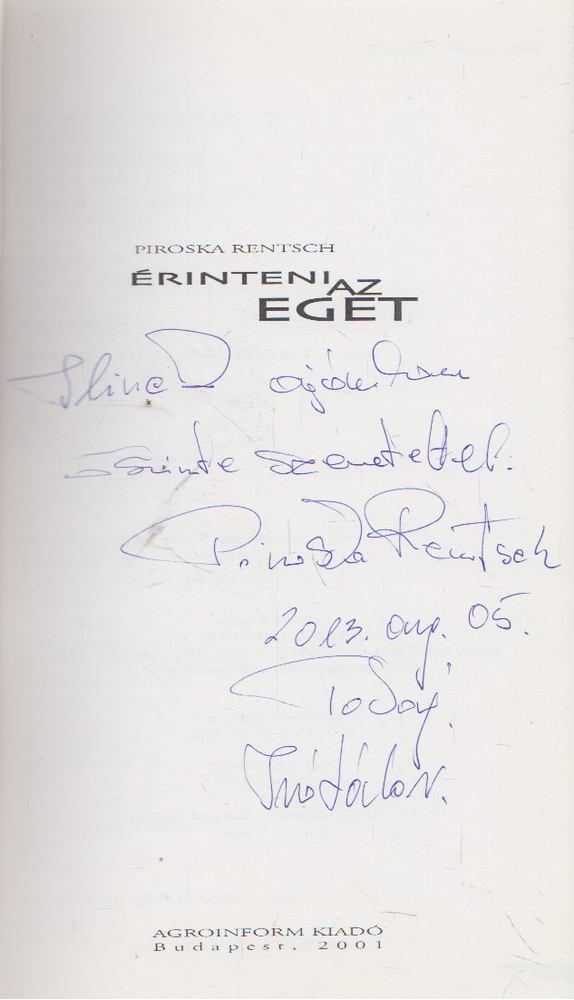 PIROSKA RENTSCH
ÉRINTENI AZ
EGET
ajánlom
őszinte szeretettel.
Piroska Rentsch
2013. aug. 05.
Tokaj.
Írótábor.
AGROINFORM KIADÓ
Budapest, 2001